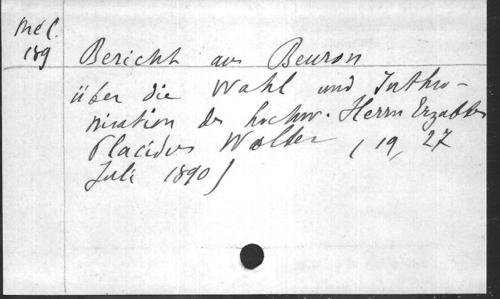 Mel.
189
Bericht aus Beuron
über die Wahl und Inthro-
nisation des hochw. Herrn Erzabtes
Placidus Wolter (19, 27
Juli 1890)